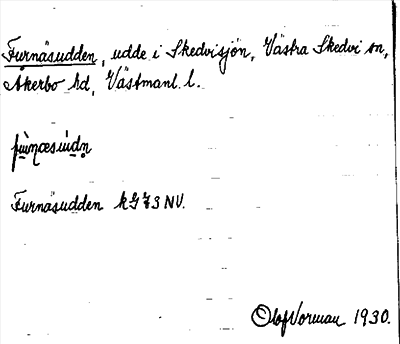 Furnäsudden, udde i Skedvisjön, Västra Skedvi sn,
Åkerbo hd, Västmanl. l.
Furnäsudden
NV.
Olof Vorman 1930.